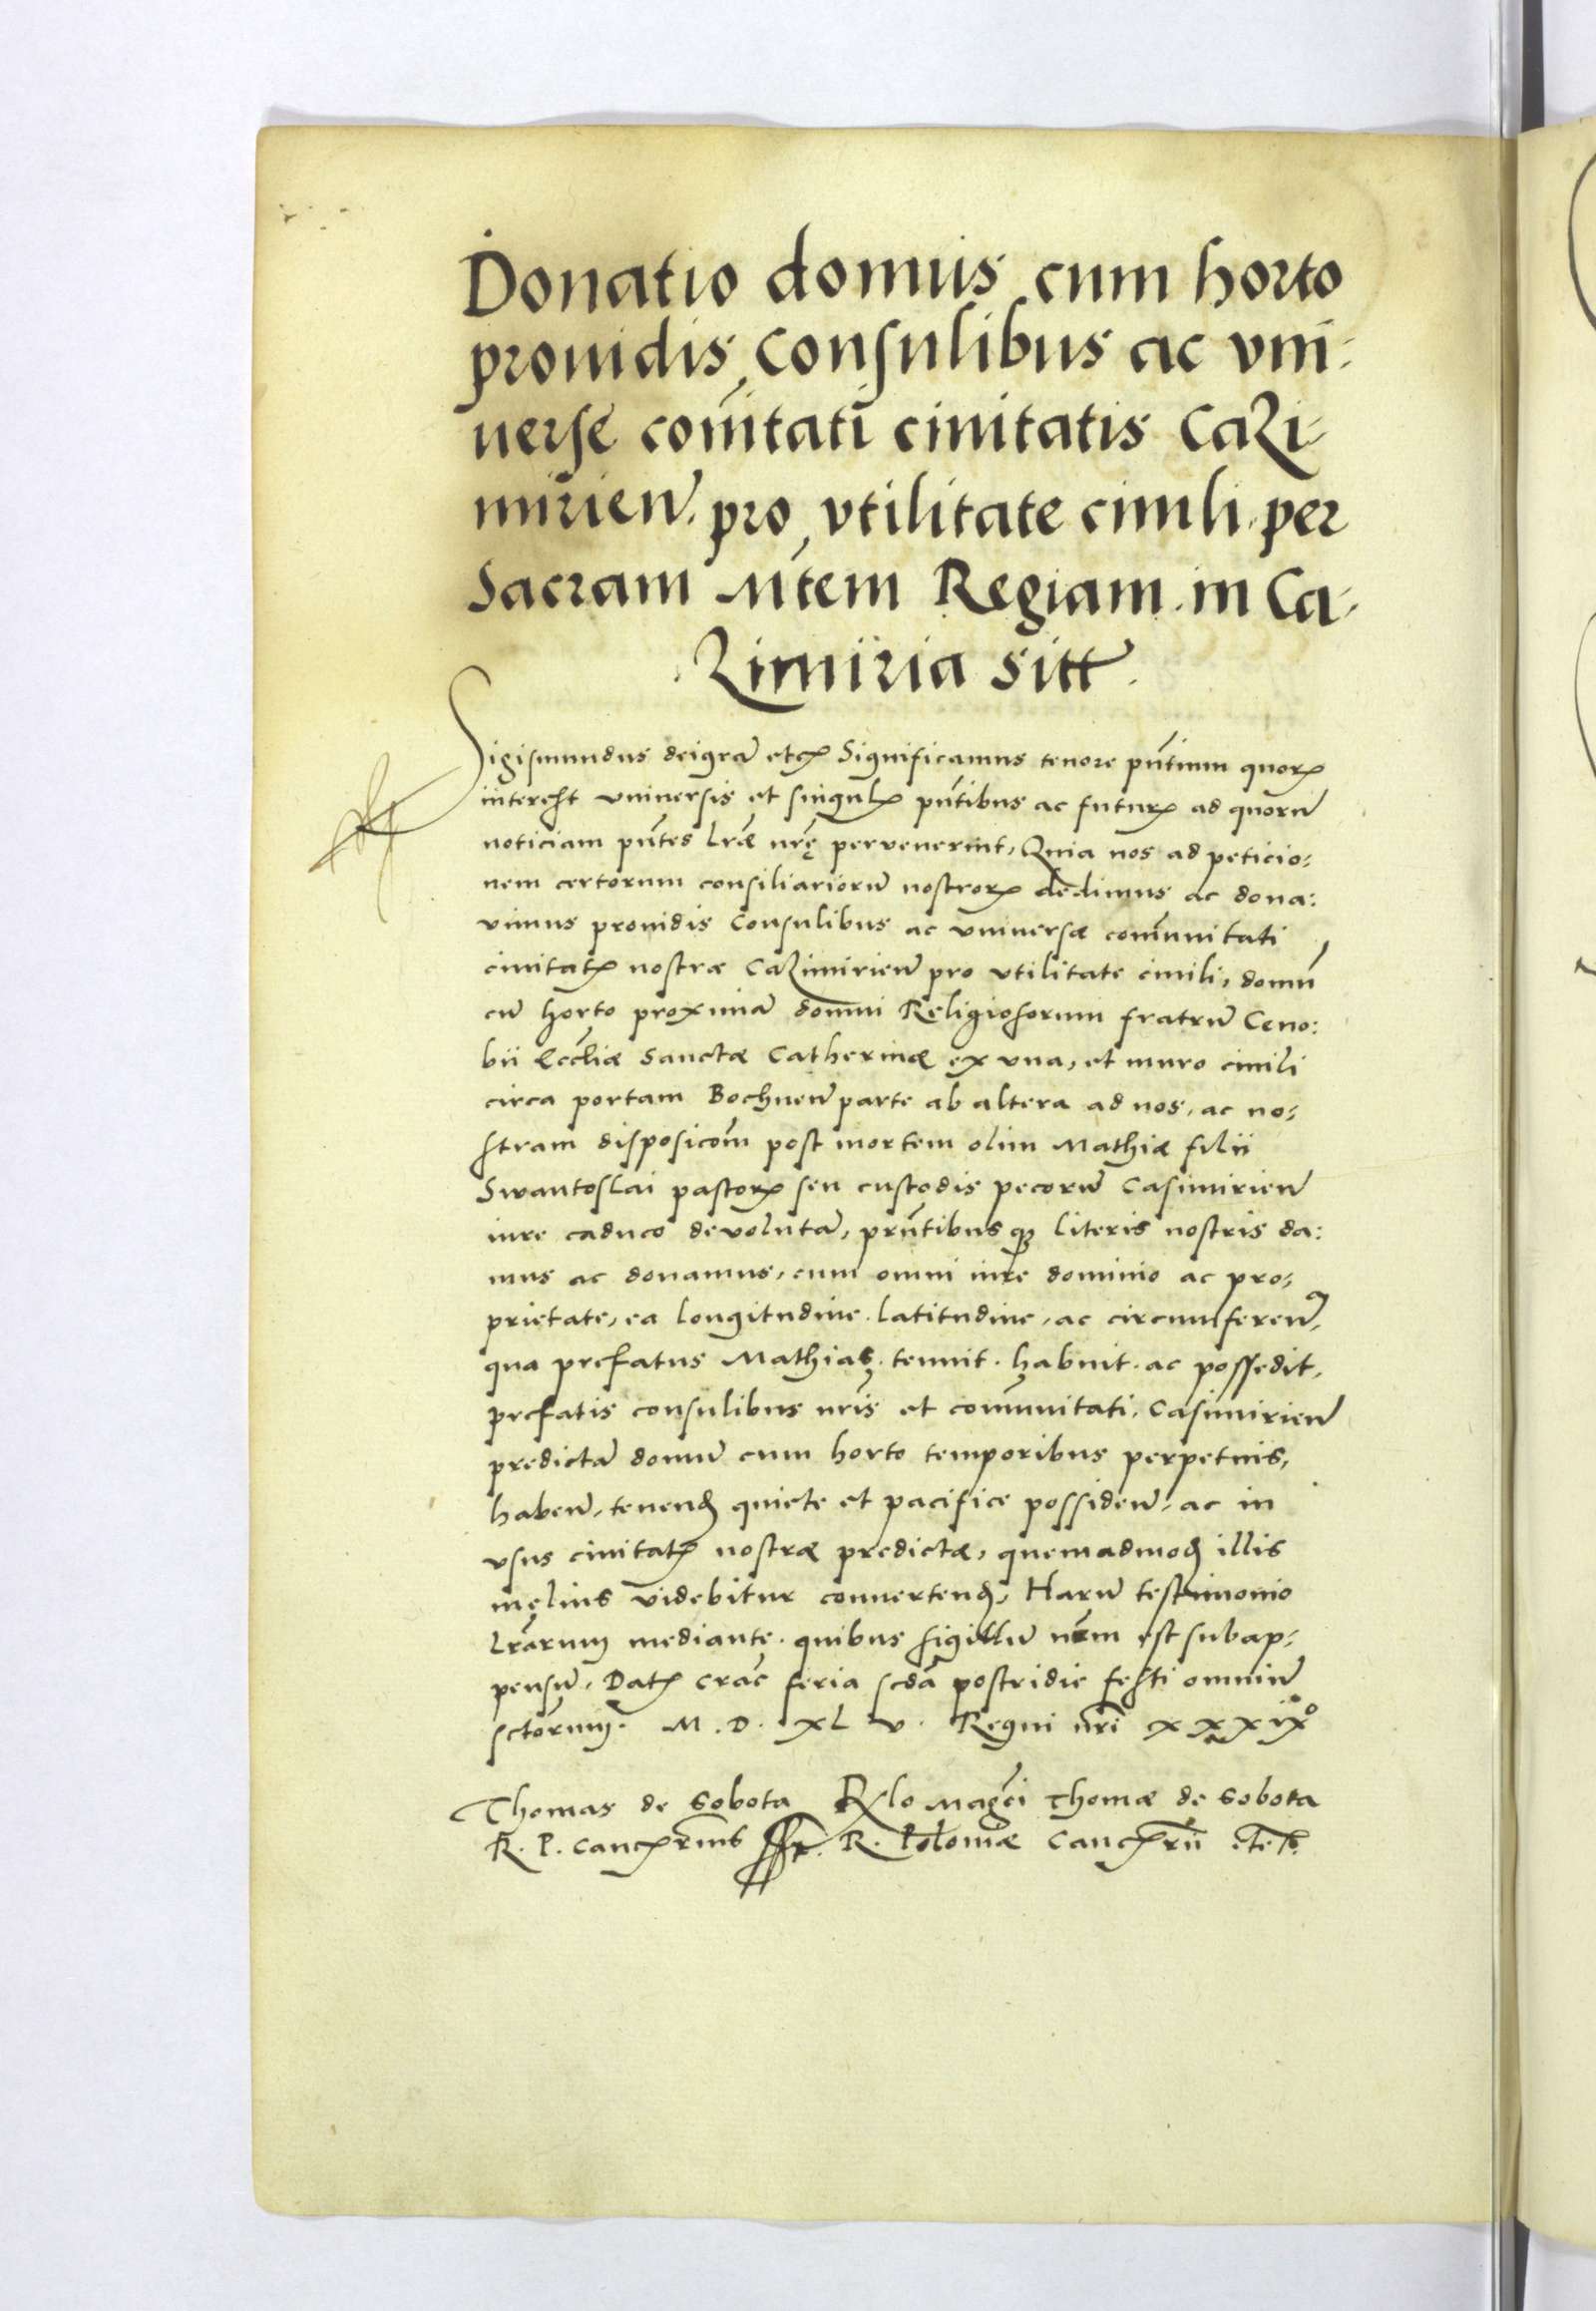 Donatio domus cum horto
prouidis Consulibus ac vni-
uerse com̄itati ciuitatis Cazi-
mirieñ. pro vtilitate ciuili per
Sacram Mtem Regiam in Ca-
zimiria sitt.
Sigismundus dei gra͂ etcꝭ Significamus tenore pn̄tium quorꝭ
interest vniuersis et singulꝭ pn̄tibus ac futurꝭ ad quorū
noticiam pn̄tes lr̄æ nr̄ę pervenerint, Quia nos ad peticio-
nem certorum consiliariorū nostrorꝭ dedimus ac dona:
vimus prouidis Consulibus ac vniuersæ com̄unitati
ciuitatꝭ nostræ Cazimirieñ pro vtilitate ciuili, domū
cū horto proximā domui Religiosorum fratrū Ceno:
bii Eccl̄iæ Sanctæ Catherinæ ex vna, et muro ciuili
circa portam Bochneñ parte ab altera ad nos, ac no-
stram disposicōm post mortem olim Mathiæ filii
Swantoslai pastorꝭ seu custodis pecorū Casimirieñ
iure caduco devolutā, prn̄tibus qꝫ literis nostris da:
mus ac donamus, cum omni iure dominio ac pro-
prietate, ea longitudine. latitudine, ac circumfereñ,
qua prefatus Mathias. tenuit. habuit. ac possedit,
prefatis consulibus nr̄is et com̄unitati. Casimirieñ
predictā domū cum horto temporibus perpetuis,
habeñ, tenenđ quiete et pacifice possideñ, ac in
vsus ciuitatꝭ nostræ predictæ, quemadmođ illis
męlius videbitur conuertenđ, Harū testimonio
lr̄arum mediante. quibus sigillū nr̄m est subap-
pensū. Datꝭ Crac̄ feria scd̄a postridie festi omniū
sctōrum. M. D. XL v. Regni nr̄i xxxix°
Thomas de Sobota Rlo Maḡci Thomæ de Sobota
R. P. Cancꝭrius R. Poloniæ Cancꝭrii